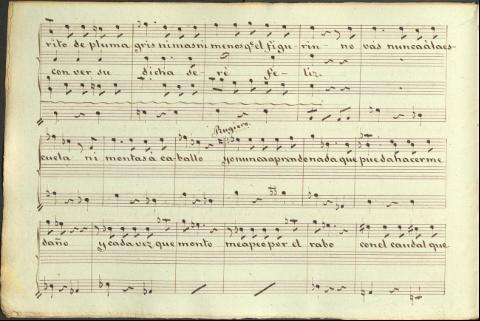 rito de pluma gris ni mas ni menos qe. el figurin - no vas nunca á la es-
con ver su dicha se - ré fe - liz.
Rugiero
cuela ni montas á caballo yo nunca aprendo nada que pueda hacerme
daño y cada vez que monto me apeo por el rabo con el caudal que